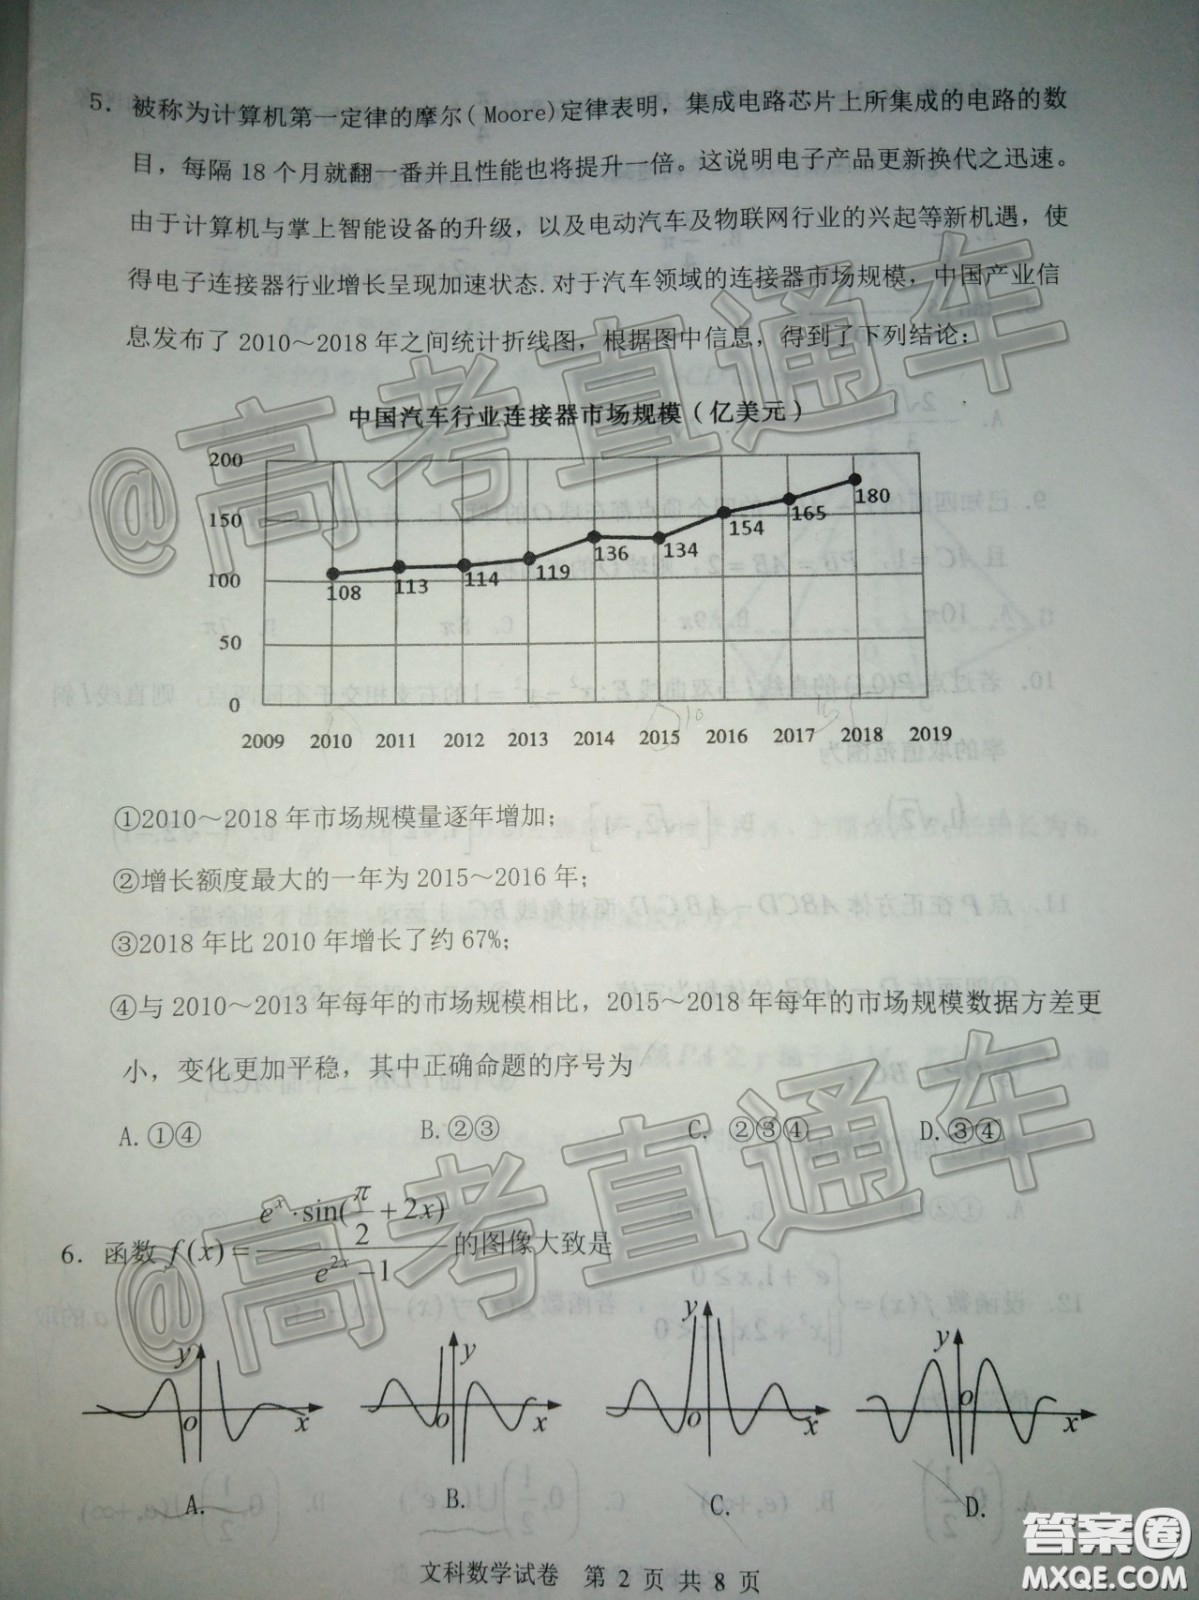 5. 被称为计算机第一定律的摩尔(Moore)定律表明，集成电路芯片上所集成的电路的数
目，每隔 18 个月就翻一番并且性能也将提升一倍。这说明电子产品更新换代之迅速。
由于计算机与掌上智能设备的升级，以及电动汽车及物联网行业的兴起等新机遇，使
得电子连接器行业增长呈现加速状态.对于汽车领域的连接器市场规模，中国产业信
息发布了 2010～2018 年之间统计折线图，根据图中信息，得到了下列结论：
中国汽车行业连接器市场规模（亿美元）
200
150
100
50
0
108 113 114 119 136 134 154 165 180
2009 2010 2011 2012 2013 2014 2015 2016 2017 2018 2019
①2010～2018 年市场规模量逐年增加；
②增长额度最大的一年为 2015～2016 年；
③2018 年比 2010 年增长了约 67%；
④与 2010～2013 年每年的市场规模相比，2015～2018 年每年的市场规模数据方差更
小，变化更加平稳，其中正确命题的序号为
A. ①④ B. ②③ C. ②③④ D. ③④
6. 函数 f(x) = \frac{e^x·sin(\frac{π}{2}+2x)}{e^{2x}-1} 的图像大致是
y O x y O x y O x y O x
A. B. C. D.
文科数学试卷 第 2 页 共 8 页
@高考直通车
@高考直通车
答案圈
MXQE.COM